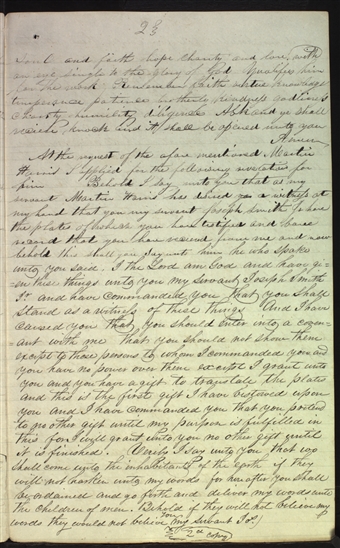 23
soul and faith hope charity and love with
an eye single to the glory of God qualifies him
for the work Remember faith virtue knowledge
temperance patience brotherly kindness godliness
charity humility diligence Ask and ye shall
receive knock and it shall be opened unto you
Amen
At the request of the afore mentioned Martin
Harris I applied for the following revelation for
him Behold I say unto you that as my
servant Martin Harris has desired a witness at
my hand that you my servant Joseph Smith Jr have
the plates of which you have testified and bare
record that you have received from me and now
behold this shall you say unto him he who spake
unto you said I the Lord am God and have gi-
-ven this things unto you my servant Joseph Smith
Jr and have commanded you that you shall
stand as a witness of these things And I have
caused you that you should enter into a coven-
ant with me that you should not show them
except to those persons to whom I commanded you and
you have no power over them except I grant unto
you and you have a gift to translate the plates
and this is the first gift I have bestowed upon
you and I have commanded you that you pretend
to no other gift until my purpose is fulfilled in
this for I will grant unto you no other gift until
it is finished Verily I say unto you that wo
shall come unto the inhabitants of the earth if they
will not harken unto my words for hereafter you shall
be ordained and go forth and deliver my words unto
the children of men Behold if they will not believe my
words they would not believe you my servant Jos
2nd copy